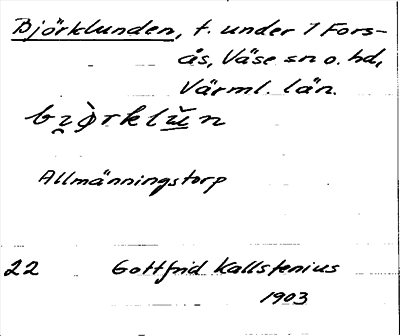 Björklunden, t. under 1 Fors-
ås, Väse sn o. hd,
Värml. län.
bi̯ò̤rklŭn
Allmänningstorp
22 Gottfrid Kallstenius
1903